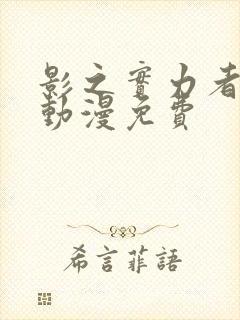 影之實力者
動漫免費
希言菲語